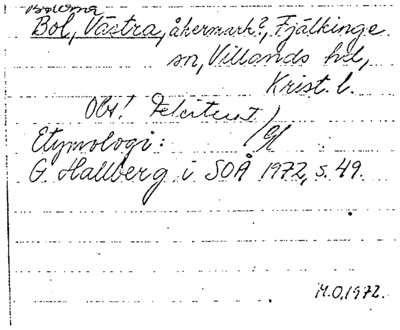 Bolerna
Bol, Västra, åkermark?, Fjälkinge
sn, Villands hd,
Krist. l.
Obs!
Etymologi:
G. Hallberg i SOÅ 1972, s. 49.
M.O. 1972.